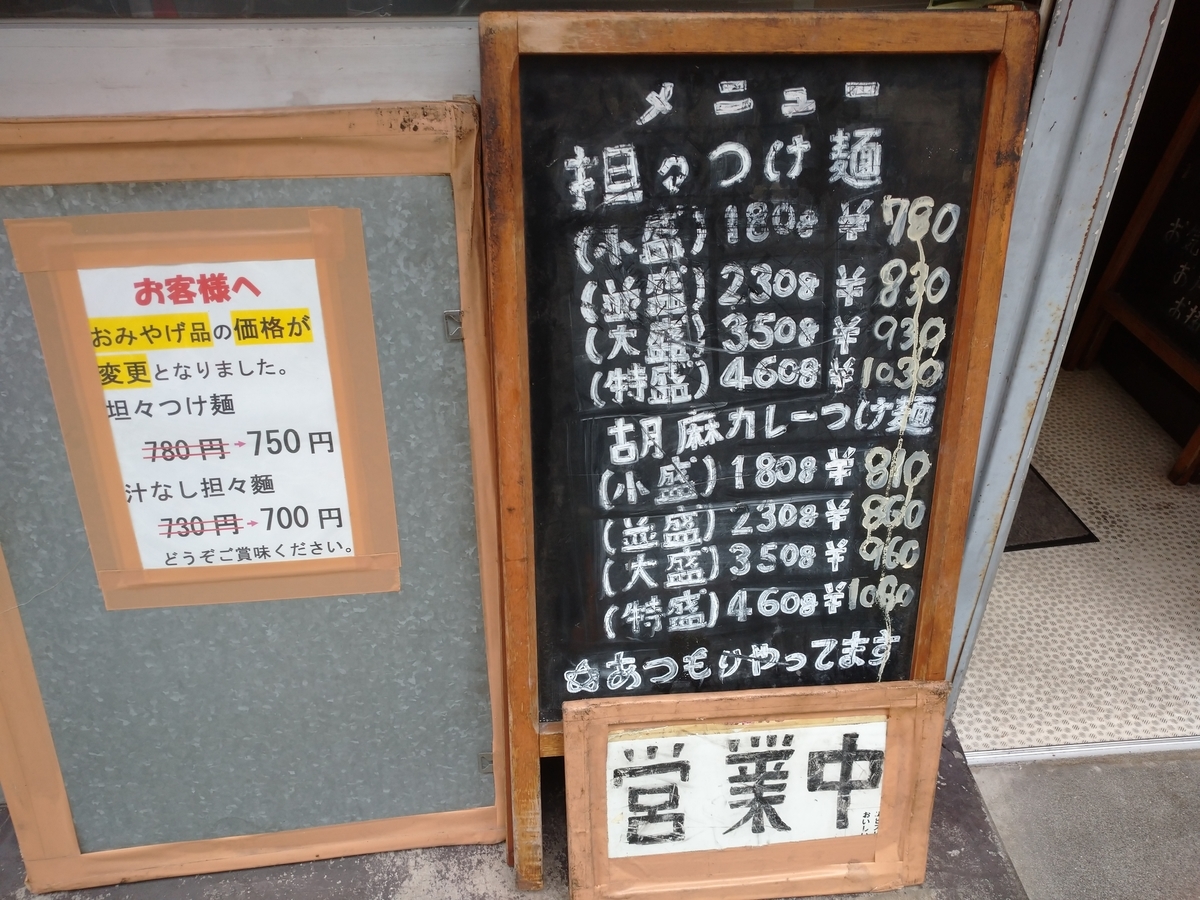 お客様へ
おみやげ品の価格が
変更となりました。
坦々つけ麺
780円→750円
汁なし担々麺
730円→700円
どうぞご賞味ください。
メニュー
担々つけ麺
(小盛) 180g ¥780
(並盛) 230g ¥830
(大盛) 350g ¥930
(特盛) 460g ¥1030
胡麻カレーつけ麺
(小盛) 180g ¥810
(並盛) 230g ¥860
(大盛) 350g ¥960
(特盛) 460g ¥1060
☆あつもりやってます
営業中